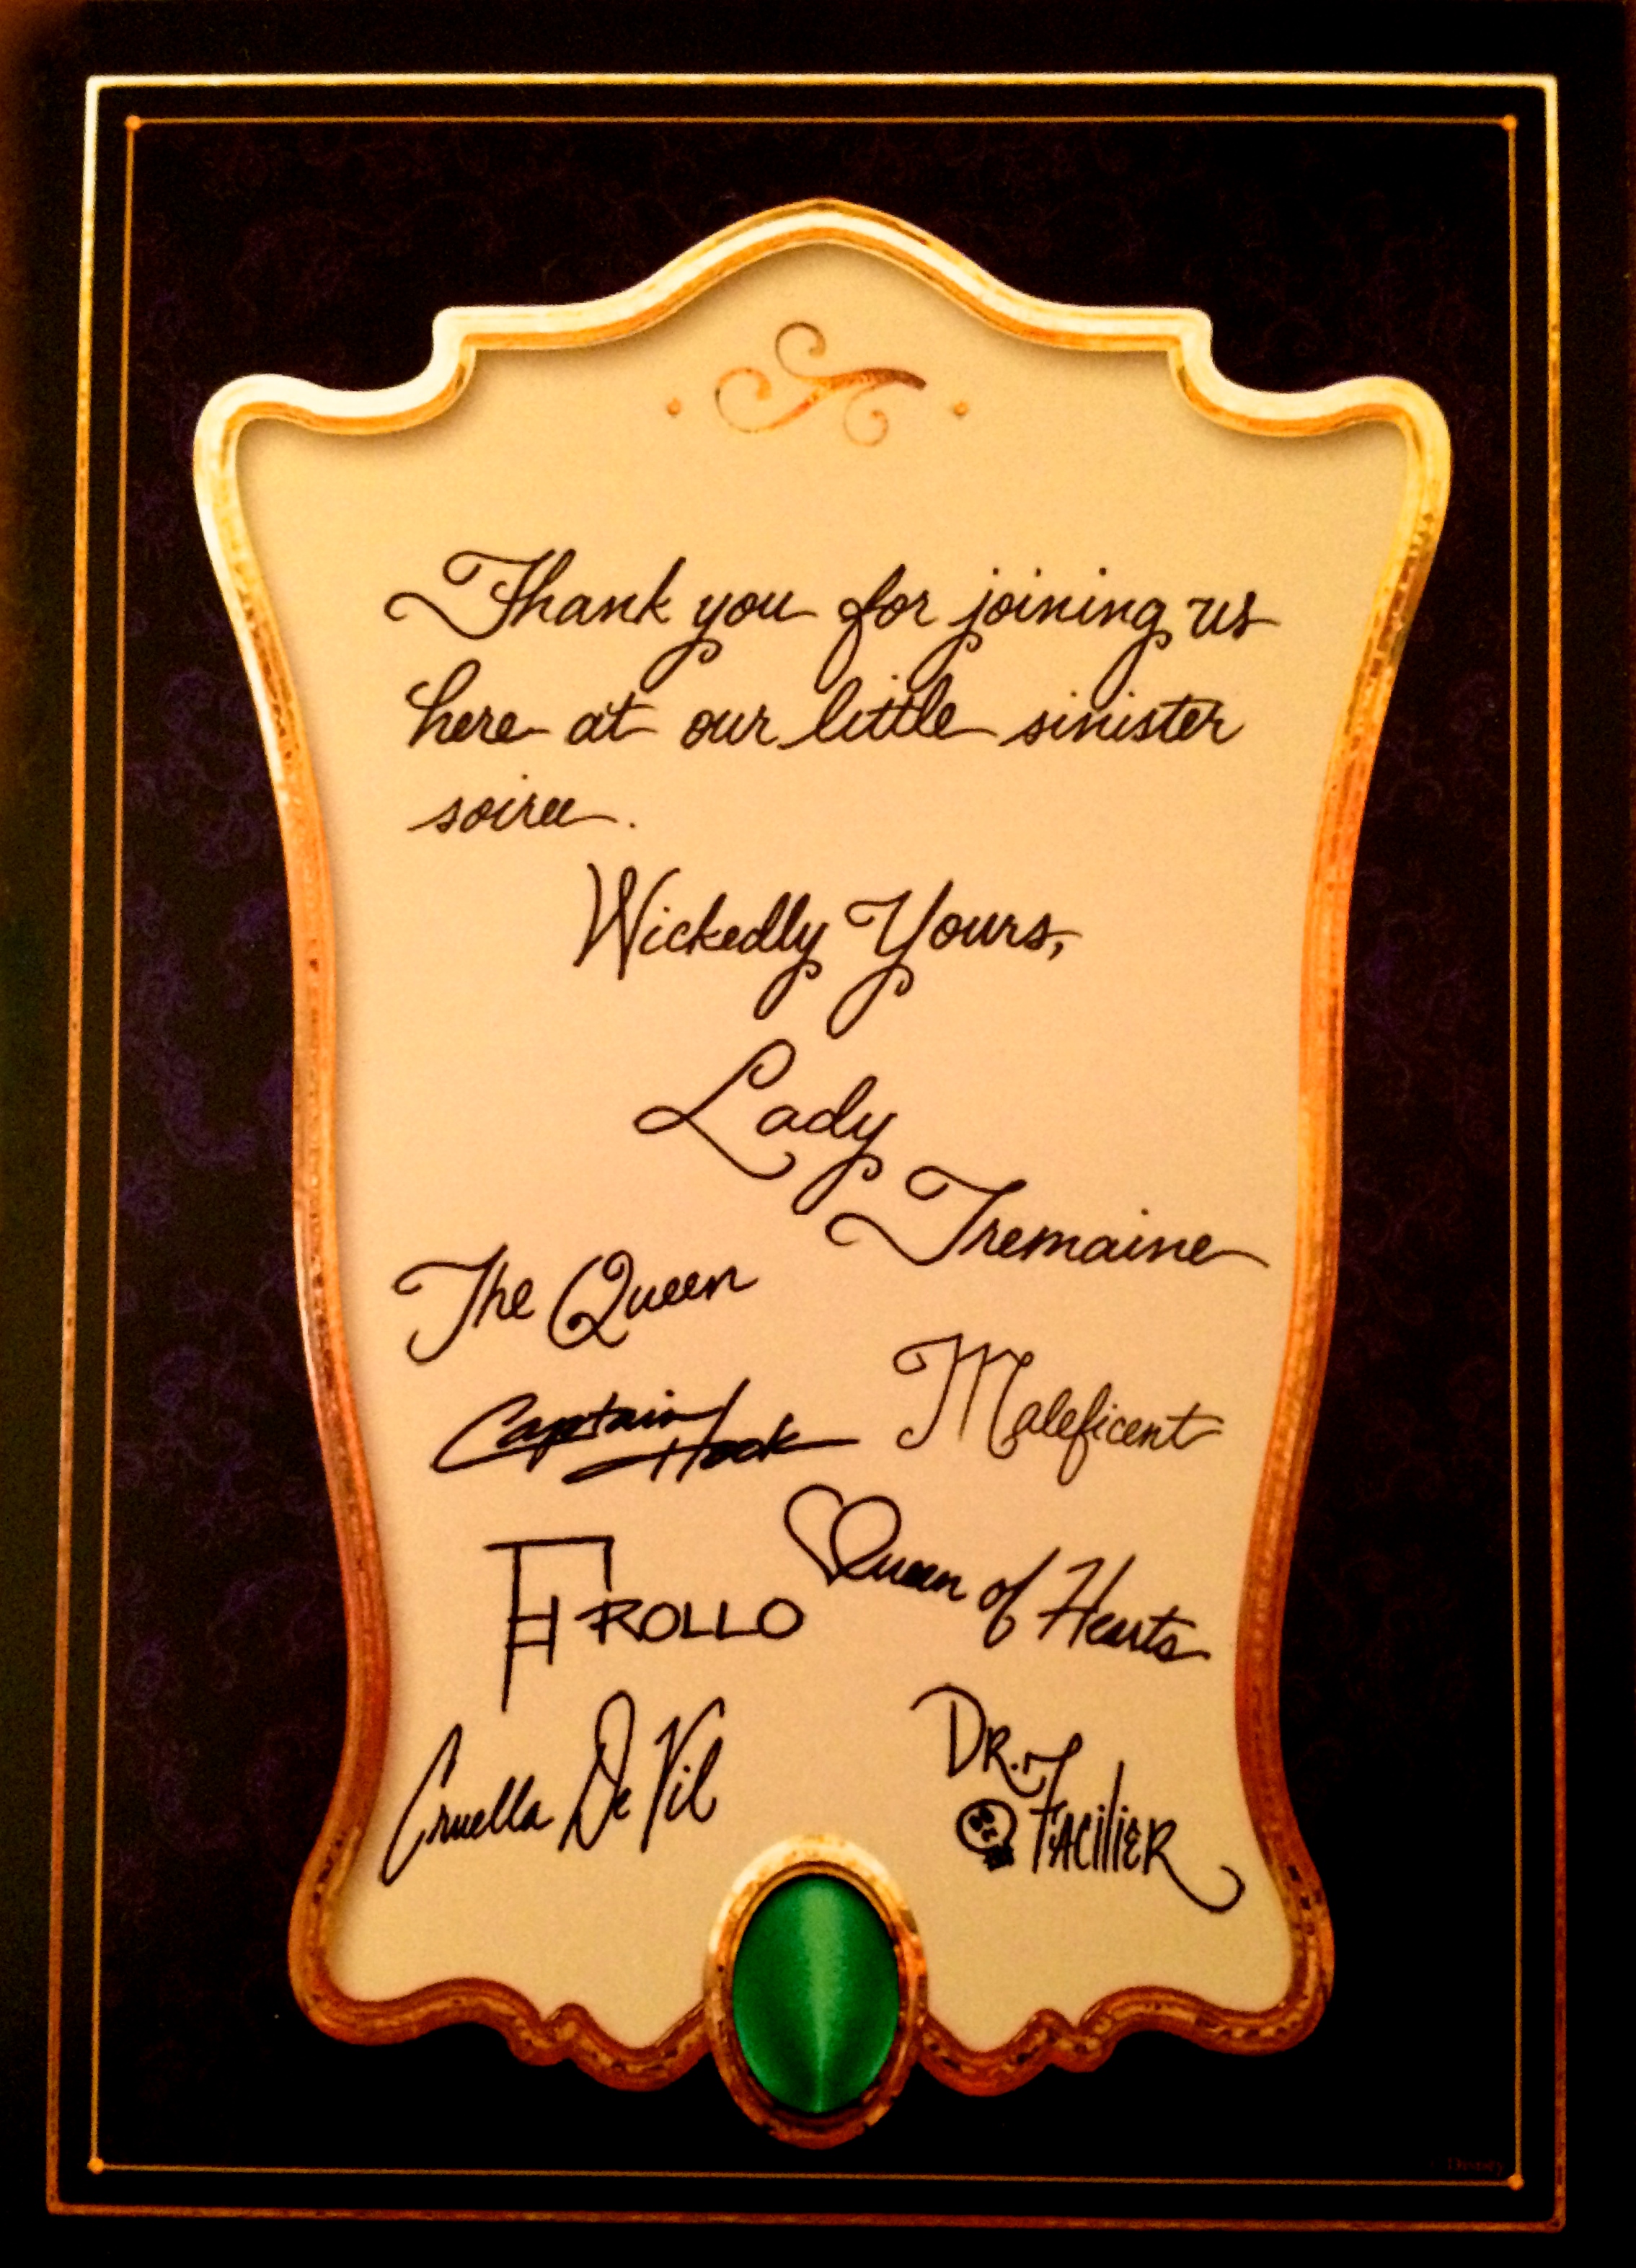 Thank you for joining us
here at our little sinister
soiree.
Wickedly Yours,
Lady
Tremaine
The Queen
Maleficent
Captain
Hook
Queen of Hearts
FROLLO
Cruella De Vil
DR.
FACILIER
Disney